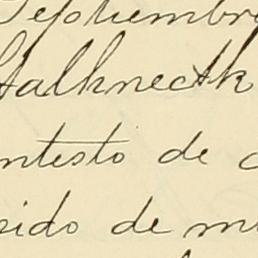 Septiembre
Stalknecht
ntesto de
rido de m